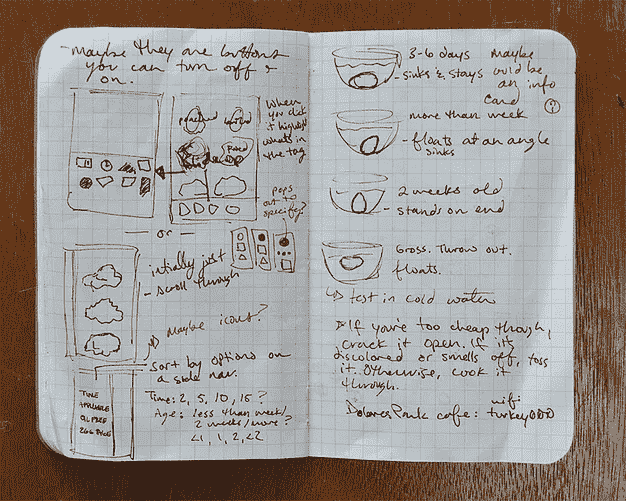 - maybe they are buttons
you can turn off &
on.
poached
Fried
When
you click
it highlights
what's in
the tag
pops
out to
specify?
— or —
initially just
- scroll through
Maybe icons?
- Sort by options on
a side nav.
Time: 2, 5, 10, 15?
Age: less than week/
2 weeks/more?
<1, 1, 2, <2
TIME
3-6 days
- sinks & stays
maybe
could be
an info
card
i
more than week
- floats at an angle
sinks
2 weeks old
- stands on end
Gross. Throw out.
floats.
↳ test in cold water
If you're too cheap though,
crack it open. If it's
discolored or smells off, toss
it. Otherwise, cook it
through.
wifi
Dolores Park cafe: turkey000